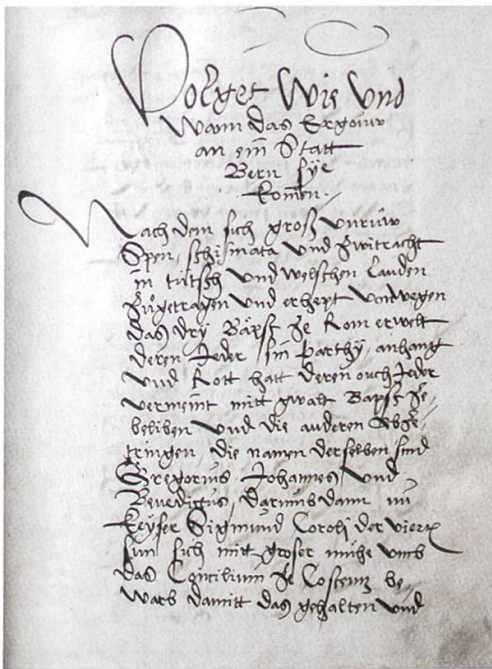 Volget Wie Vnd
Wann das Ergöuw
an ein Statt
Bern sye
komen.
Nach dem sich groß vnruw
Spen, schismata vnd Zwitracht
in tütsch vnd welschen landen
zůgetragen vnd erhept vonwegen
das dry Bäpst ze Rom erwelt
deren Jeder sin parthy, anhang
vnd Rott hatt deren ouch Jeder
vermeint mitt gwalt Bapst ze
beliben vnd die anderen abze-
tringen, die namen derselben sind
Gregorius Johannes, vnd
Benedictus, darumb dann nu
Keyser Sigmund Caroli der vierx
sun sich mitt groser mühe vmb
das Concilium ze Costentz be-
warb damitt das gehalten vnd